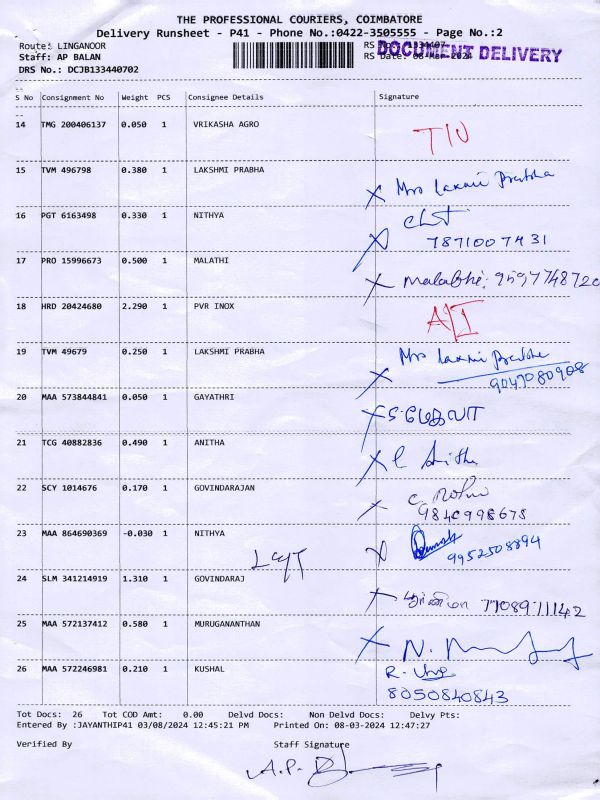 THE PROFESSIONAL COURIERS, COIMBATORE
Delivery Runsheet - P41 - Phone No.:0422-3505555 - Page No.:2
Route: LINGANOOR RS No.: 1334407
Staff: AP BALAN RS Date: 08-Mar-2024 DOCUMENT DELIVERY
DRS No.: DCJB133440702
S No Consignment No Weight PCS Consignee Details Signature
14 TMG 200406137 0.050 1 VRIKASHA AGRO
15 TVM 496798 0.380 1 LAKSHMI PRABHA Mrs Laxmi Prabha
16 PGT 6163498 0.330 1 NITHYA
7871007431
17 PRO 15996673 0.500 1 MALATHI 9597748720
18 HRD 20424680 2.290 1 PVR INOX
19 TVM 49679 0.250 1 LAKSHMI PRABHA Mrs Laxmi Prabha
9047080908
20 MAA 573844841 0.050 1 GAYATHRI
21 TCG 40882836 0.490 1 ANITHA Anitha
22 SCY 1014676 0.170 1 GOVINDARAJAN
9840998678
23 MAA 864690369 -0.030 1 NITHYA 9952508894
24 SLM 341214919 1.310 1 GOVINDARAJ 7708971142
25 MAA 572137412 0.580 1 MURUGANANTHAN
26 MAA 572246981 0.210 1 KUSHAL
8050840843
Tot Docs: 26 Tot COD Amt: 0.00 Delvd Docs: Non Delvd Docs: Delvy Pts:
Entered By :JAYANTHIP41 03/08/2024 12:45:21 PM Printed On: 08-03-2024 12:47:27
Verified By Staff Signature